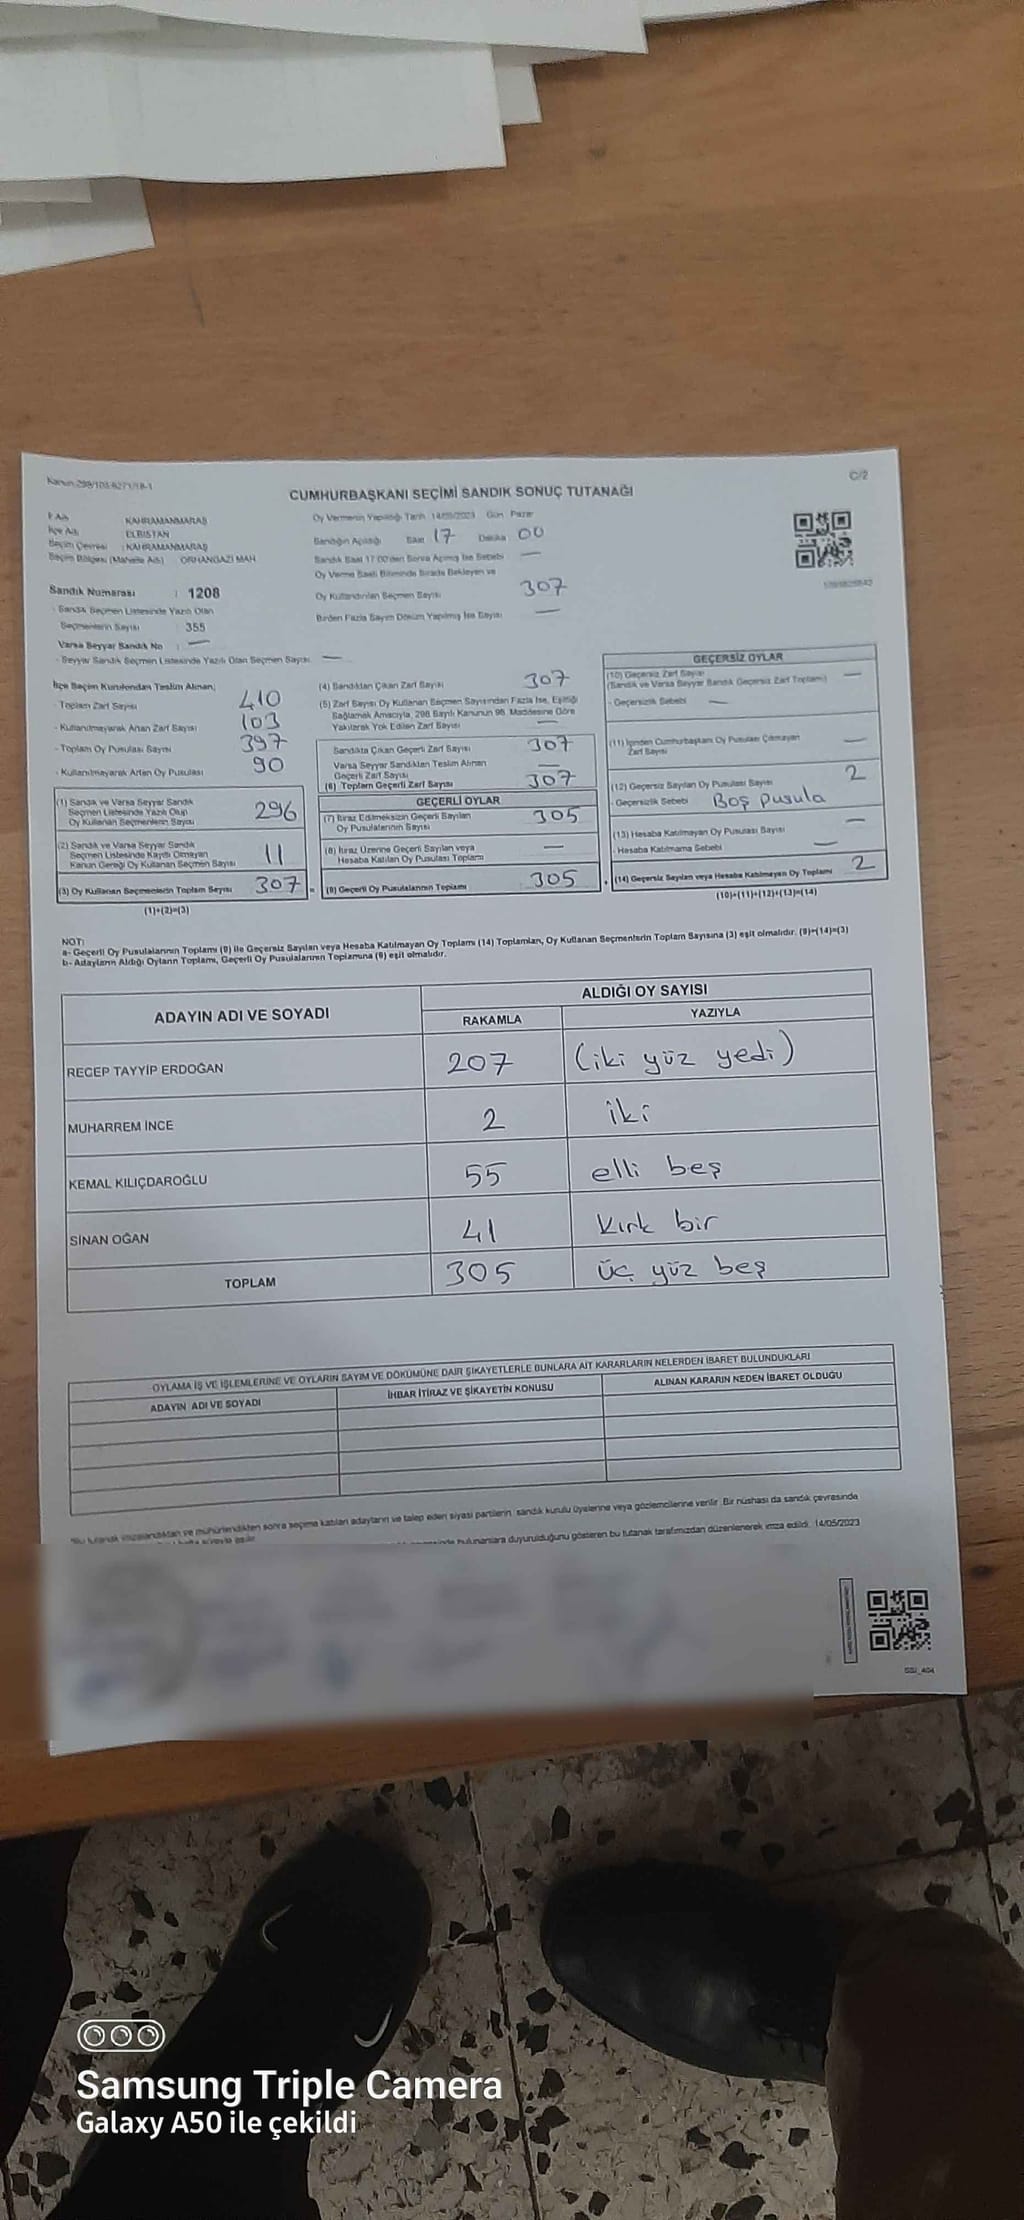 Kanun:298/105-6271/18-1
C/2
CUMHURBAŞKANI SEÇİMİ SANDIK SONUÇ TUTANAĞI
İl Adı KAHRAMANMARAŞ
İlçe Adı ELBİSTAN
Seçim Çevresi : KAHRAMANMARAŞ
Seçim Bölgesi (Mahalle Adı) ORHANGAZİ MAH
Sandık Numarası : 1208
- Sandık Seçmen Listesinde Yazılı Olan
Seçmenlerin Sayısı : 355
Varsa Seyyar Sandık No : —
- Seyyar Sandık Seçmen Listesinde Yazılı Olan Seçmen Sayısı: —
Oy Vermenin Yapıldığı Tarih 14/05/2023 Gün Pazar
Sandığın Açıldığı Saat 17 Dakika 00
Sandık Saat 17:00'den Sonra Açılmış İse Sebebi —
Oy Verme Saati Bitiminde Sırada Bekleyen ve
Oy Kullandırılan Seçmen Sayısı 307
Birden Fazla Sayım Döküm Yapılmış İse Sayısı —
İlçe Seçim Kurulundan Teslim Alınan;
- Toplam Zarf Sayısı 410
- Kullanılmayarak Artan Zarf Sayısı 103
- Toplam Oy Pusulası Sayısı 397
- Kullanılmayarak Artan Oy Pusulası 90
(1) Sandık ve Varsa Seyyar Sandık
Seçmen Listesinde Yazılı Olup
Oy Kullanan Seçmenlerin Sayısı 296
(2) Sandık ve Varsa Seyyar Sandık
Seçmen Listesinde Kaydı Olmayan
Kanun Gereği Oy Kullanan Seçmen Sayısı 11
(3) Oy Kullanan Seçmenlerin Toplam Sayısı 307
(1)+(2)=(3)
(4) Sandıktan Çıkan Zarf Sayısı 307
(5) Zarf Sayısı Oy Kullanan Seçmen Sayısından Fazla İse, Eşitliği
Sağlamak Amacıyla, 298 Sayılı Kanunun 98. Maddesine Göre
Yakılarak Yok Edilen Zarf Sayısı —
Sandıkta Çıkan Geçerli Zarf Sayısı 307
Varsa Seyyar Sandıktan Teslim Alınan
Geçerli Zarf Sayısı —
(6) Toplam Geçerli Zarf Sayısı 307
GEÇERLİ OYLAR
(7) İtiraz Edilmeksizin Geçerli Sayılan
Oy Pusulalarının Sayısı 305
(8) İtiraz Üzerine Geçerli Sayılan veya
Hesaba Katılan Oy Pusulası Toplamı —
(9) Geçerli Oy Pusulalarının Toplamı 305
GEÇERSİZ OYLAR
(10) Geçersiz Zarf Sayısı
(Sandık ve Varsa Seyyar Sandık Geçersiz Zarf Toplamı) —
- Geçersizlik Sebebi —
(11) İçinden Cumhurbaşkanı Oy Pusulası Çıkmayan
Zarf Sayısı —
(12) Geçersiz Sayılan Oy Pusulası Sayısı 2
- Geçersizlik Sebebi Boş pusula
(13) Hesaba Katılmayan Oy Pusulası Sayısı —
- Hesaba Katılmama Sebebi —
(14) Geçersiz Sayılan veya Hesaba Katılmayan Oy Toplamı 2
(10)+(11)+(12)+(13)=(14)
NOT:
a- Geçerli Oy Pusulalarının Toplamı (9) ile Geçersiz Sayılan veya Hesaba Katılmayan Oy Toplamı (14) Toplamları, Oy Kullanan Seçmenlerin Toplam Sayısına (3) eşit olmalıdır. (9)+(14)=(3)
b- Adayların Aldığı Oyların Toplamı, Geçerli Oy Pusulalarının Toplamına (9) eşit olmalıdır.
ADAYIN ADI VE SOYADI ALDIĞI OY SAYISI
RAKAMLA YAZIYLA
RECEP TAYYİP ERDOĞAN 207 (iki yüz yedi)
MUHARREM İNCE 2 iki
KEMAL KILIÇDAROĞLU 55 elli beş
SİNAN OĞAN 41 kırk bir
TOPLAM 305 üç yüz beş
OYLAMA İŞ VE İŞLEMLERİNE VE OYLARIN SAYIM VE DÖKÜMÜNE DAİR ŞİKAYETLERLE BUNLARA AİT KARARLARIN NELERDEN İBARET BULUNDUKLARI
ADAYIN ADI VE SOYADI İHBAR İTİRAZ VE ŞİKAYETİN KONUSU ALINAN KARARIN NEDEN İBARET OLDUĞU
Bu tutanak imzalandıktan ve mühürlendikten sonra seçime katılan adayların ve talep eden siyasi partilerin sandık kurulu üyelerine veya gözlemcilerine verilir. Bir nüshası da sandık çevresinde
bulunanlara duyurulduğunu gösteren bu tutanak tarafımızdan düzenlenerek imza edildi. 14/05/2023
SSI_404
Samsung Triple Camera
Galaxy A50 ile çekildi